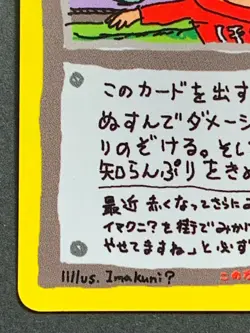 このカードを出す
ぬすんでダメージ
りのぞける。そし
知らんぷりをきめ
最近 赤くなってさらに
イマクニ?を街でみかけ
やせてますね」と必ず
Illus. Imakuni?
この